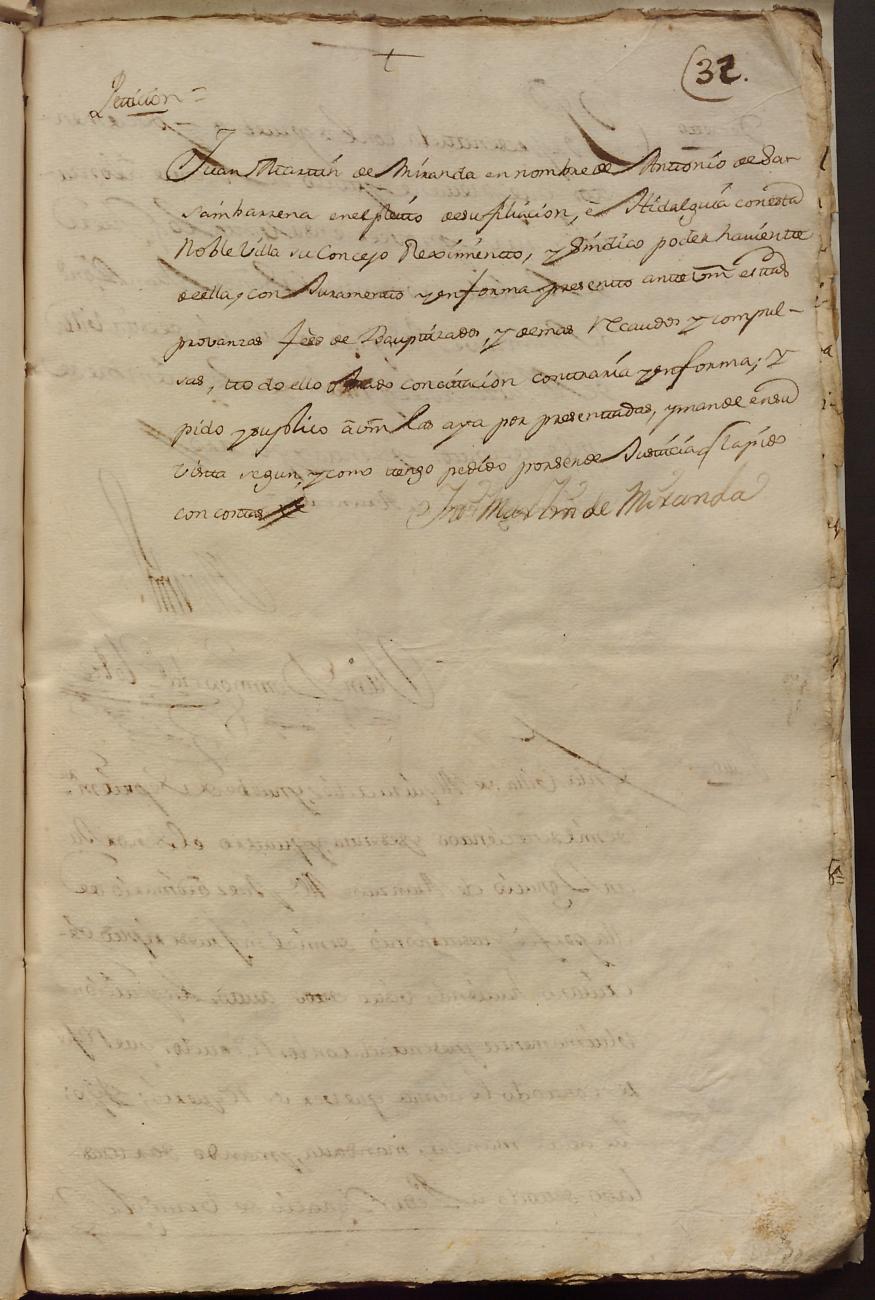 32.
Peticion =
Juan Martin de Miranda en nombre de Antonio de Sar-
sambarrena en el pleito de su filiacion, è Hidalguia con esta
Noble Villa su Concejo Reximiento, y Sindico poder haviente
de ella, con Juramento y en forma presento ante Vm estas
provanzas fees de Bauptizados, y demas recaudos y compul-
sas, todo ello obrado con citacion contraria y en forma; Y
pido y suplico a Vm las aya por presentadas, y mande en su
vista segun, y como tengo pedido por ser de Justicia q la pido
con costas
Juo Martin de Miranda